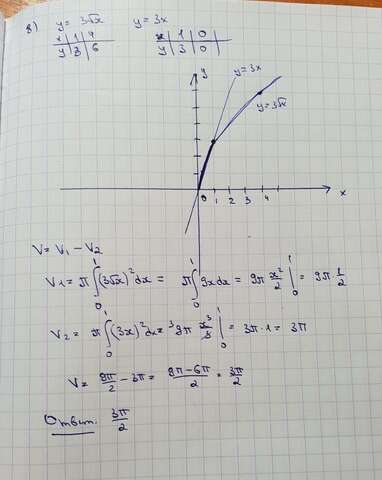 8) y = 3√x   y = 3x
x | 1 | 4   x | 1 | 0
y | 3 | 6   y | 3 | 0
y
y = 3x
y = 3√x
0 1 2 3 4 x
V = V₁ - V₂
V₁ = π∫₀¹(3√x)²dx = π∫₀¹9xdx = 9π x²/2 |₀¹ = 9π·1/2
V₂ = π∫₀¹(3x)²dx = ³9π x³/3 |₀¹ = 3π·1 = 3π
V = 9π/2 - 3π = 9π-6π/2 = 3π/2
Ответ: 3π/2